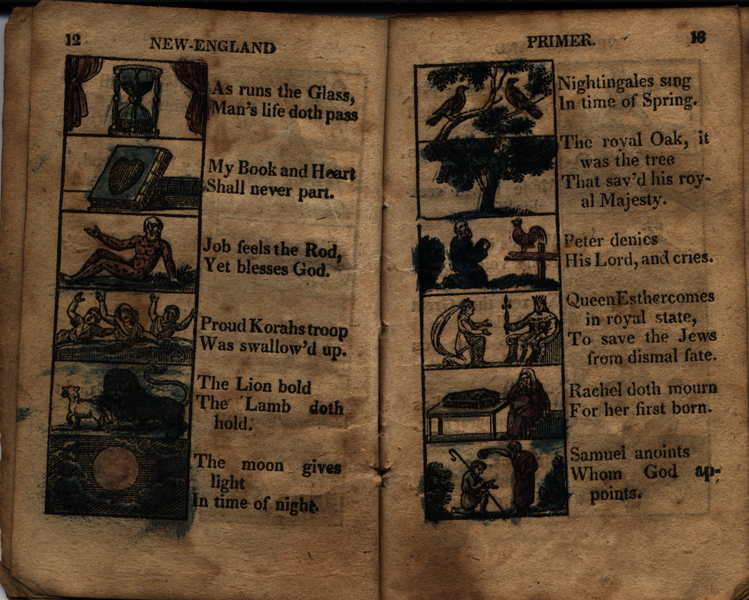 12
NEW-ENGLAND
As runs the Glass,
Man's life doth pass
My Book and Heart
Shall never part.
Job feels the Rod,
Yet blesses God.
Proud Korahs troop
Was swallow'd up.
The Lion bold
The Lamb doth
hold.
The moon gives
light
In time of night.
PRIMER.
13
Nightingales sing
In time of Spring.
The royal Oak, it
was the tree
That sav'd his roy-
al Majesty.
Peter denies
His Lord, and cries.
Queen Esther comes
in royal state,
To save the Jews
from dismal fate.
Rachel doth mourn
For her first born.
Samuel anoints
Whom God ap-
points.